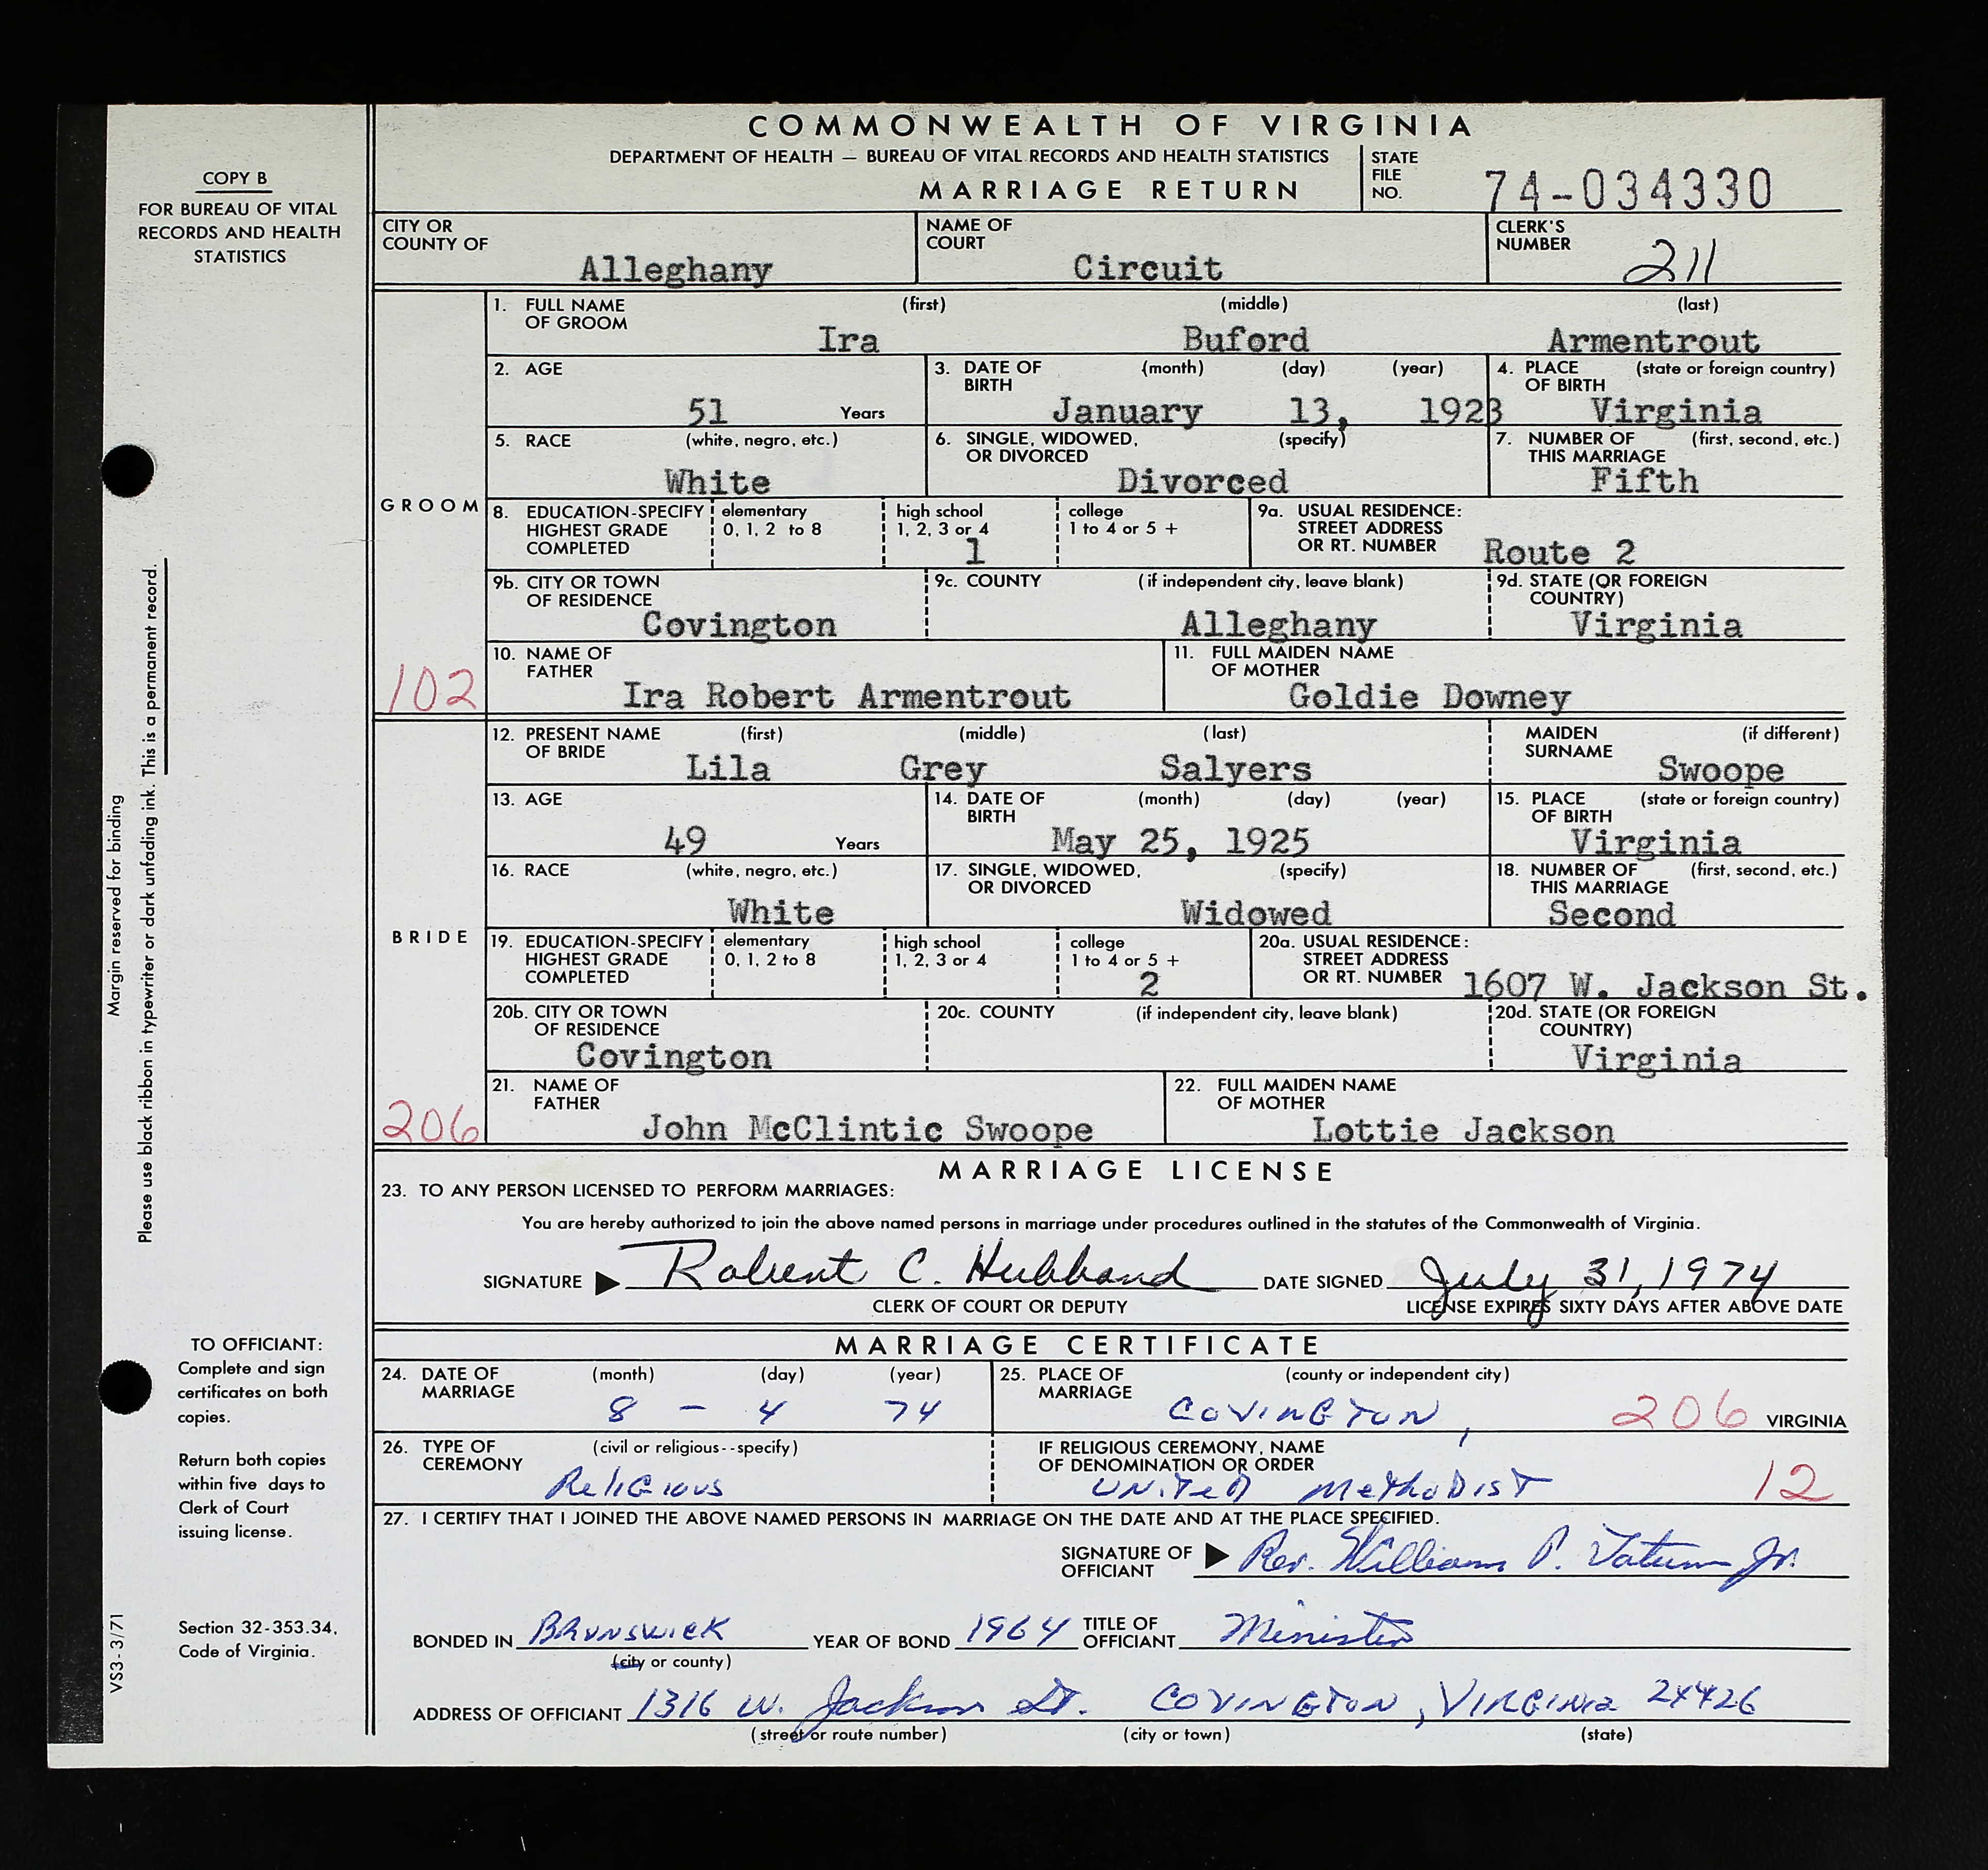 COMMONWEALTH OF VIRGINIA
DEPARTMENT OF HEALTH — BUREAU OF VITAL RECORDS AND HEALTH STATISTICS
MARRIAGE RETURN
STATE FILE NO. 74-034330
COPY B
FOR BUREAU OF VITAL
RECORDS AND HEALTH
STATISTICS
CITY OR COUNTY OF Alleghany
NAME OF COURT Circuit
CLERK'S NUMBER 211
GROOM
1. FULL NAME OF GROOM (first) (middle) (last)
Ira Buford Armentrout
2. AGE 51 Years
3. DATE OF BIRTH (month) (day) (year)
January 13, 1923
4. PLACE OF BIRTH (state or foreign country)
Virginia
5. RACE (white, negro, etc.)
White
6. SINGLE, WIDOWED, OR DIVORCED (specify)
Divorced
7. NUMBER OF THIS MARRIAGE (first, second, etc.)
Fifth
8. EDUCATION-SPECIFY HIGHEST GRADE COMPLETED
elementary 0, 1, 2 to 8
high school 1, 2, 3 or 4
1
college 1 to 4 or 5 +
9a. USUAL RESIDENCE: STREET ADDRESS OR RT. NUMBER Route 2
9b. CITY OR TOWN OF RESIDENCE
Covington
9c. COUNTY (if independent city, leave blank)
Alleghany
9d. STATE (OR FOREIGN COUNTRY)
Virginia
10. NAME OF FATHER
Ira Robert Armentrout
11. FULL MAIDEN NAME OF MOTHER
Goldie Downey
102
BRIDE
12. PRESENT NAME OF BRIDE (first) (middle) (last)
Lila Grey Salyers
MAIDEN SURNAME (if different)
Swoope
13. AGE 49 Years
14. DATE OF BIRTH (month) (day) (year)
May 25, 1925
15. PLACE OF BIRTH (state or foreign country)
Virginia
16. RACE (white, negro, etc.)
White
17. SINGLE, WIDOWED, OR DIVORCED (specify)
Widowed
18. NUMBER OF THIS MARRIAGE (first, second, etc.)
Second
19. EDUCATION-SPECIFY HIGHEST GRADE COMPLETED
elementary 0, 1, 2 to 8
high school 1, 2, 3 or 4
college 1 to 4 or 5 +
2
20a. USUAL RESIDENCE: STREET ADDRESS OR RT. NUMBER 1607 W. Jackson St.
20b. CITY OR TOWN OF RESIDENCE
Covington
20c. COUNTY (if independent city, leave blank)
20d. STATE (OR FOREIGN COUNTRY)
Virginia
21. NAME OF FATHER
John McClintic Swoope
22. FULL MAIDEN NAME OF MOTHER
Lottie Jackson
206
MARRIAGE LICENSE
23. TO ANY PERSON LICENSED TO PERFORM MARRIAGES:
You are hereby authorized to join the above named persons in marriage under procedures outlined in the statutes of the Commonwealth of Virginia.
SIGNATURE ▶ Robert C. Hubbard DATE SIGNED July 31, 1974
CLERK OF COURT OR DEPUTY
LICENSE EXPIRES SIXTY DAYS AFTER ABOVE DATE
MARRIAGE CERTIFICATE
24. DATE OF MARRIAGE (month) (day) (year)
8 - 4 74
25. PLACE OF MARRIAGE (county or independent city)
COVINGTON, 206 VIRGINIA
26. TYPE OF CEREMONY (civil or religious--specify)
Religious
IF RELIGIOUS CEREMONY, NAME OF DENOMINATION OR ORDER
UNITED METHODIST 12
27. I CERTIFY THAT I JOINED THE ABOVE NAMED PERSONS IN MARRIAGE ON THE DATE AND AT THE PLACE SPECIFIED.
SIGNATURE OF OFFICIANT ▶ Rev. William P. Tatum Jr.
BONDED IN BRUNSWICK YEAR OF BOND 1964 TITLE OF OFFICIANT Minister
(city or county)
ADDRESS OF OFFICIANT 1316 W. Jackson St. COVINGTON, VIRGINIA 24426
(street or route number) (city or town) (state)
Margin reserved for binding
Please use black ribbon in typewriter or dark unfading ink. This is a permanent record.
TO OFFICIANT:
Complete and sign
certificates on both
copies.
Return both copies
within five days to
Clerk of Court
issuing license.
Section 32-353.34,
Code of Virginia.
VS3-3/71